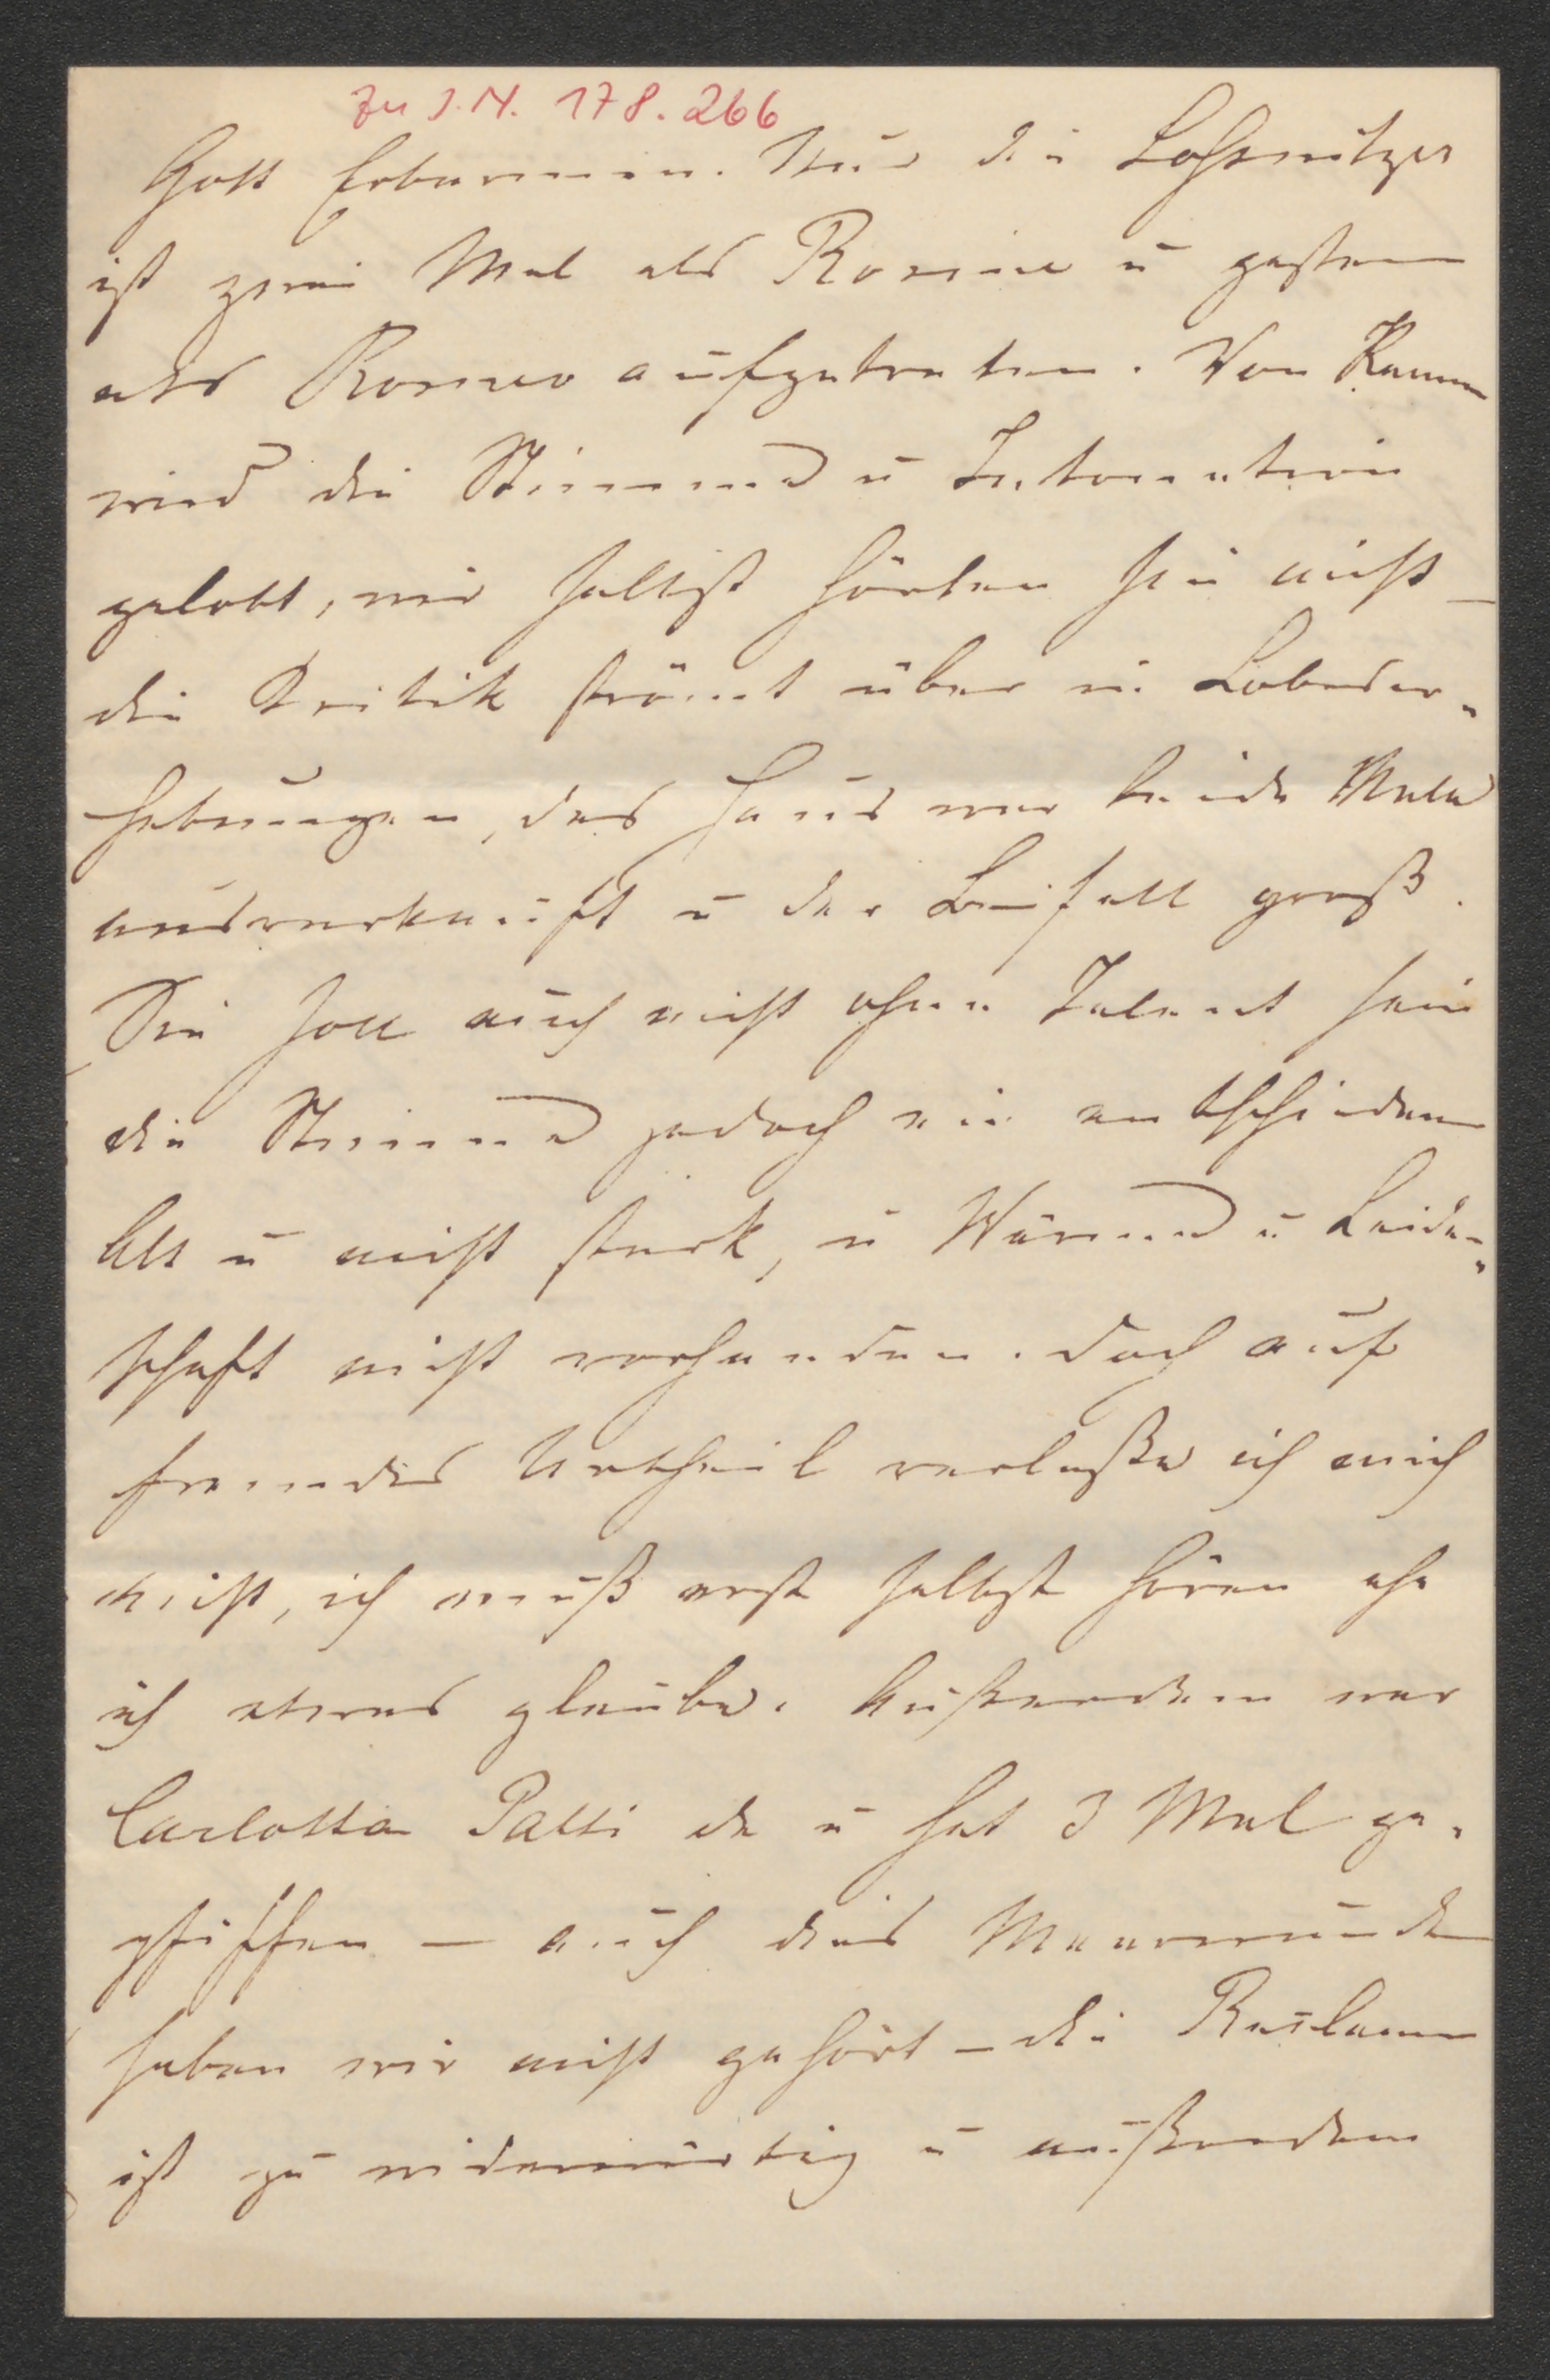 Zu I.N. 178.266
Gott Erbarmen. Nur die
ist zwei Mal als Rosine u gestern
als Romeo aufgetreten. Von
wird die Stimme u Intonation
gelobt, wir selbst hörten sie nicht –
die Kritik strömt über in Lobeser-
hebungen, das Haus war beide Male
ausverkauft u der Beifall groß.
Sie soll auch nicht ohne Talent sein
die Stimme jedoch nie entschieden
Alt u nicht stark, u Wärme u Leiden-
schaft nicht vorhanden. Doch auf
fremdes Urtheil verlaße ich mich
nicht, ich muß erst selbst hören ehe
ich etwas glaube. Außerdem war
Carlotta Patti da u hat 3 Mal ge-
pfiffen – auch dies Meerwunder
haben wir nicht gehört – die Reclame
ist zu widerwärtig u außerdem